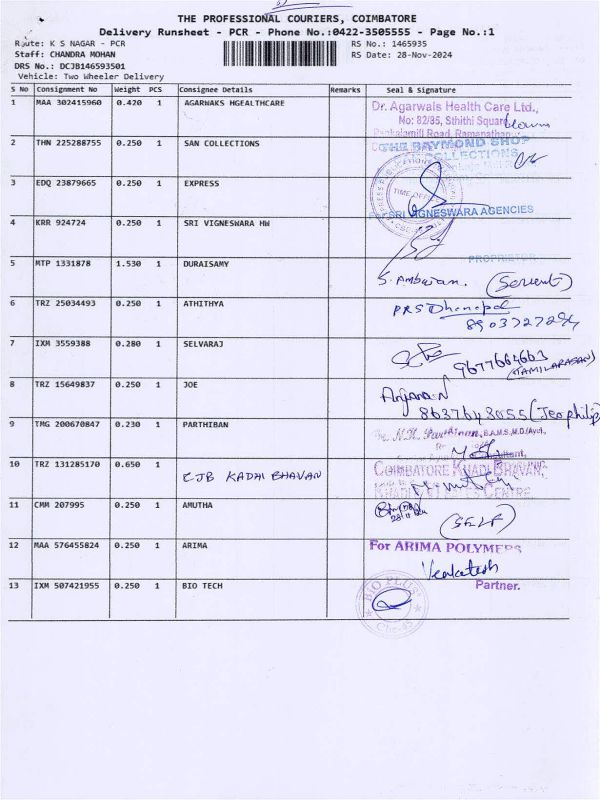 THE PROFESSIONAL COURIERS, COIMBATORE
Delivery Runsheet - PCR - Phone No.:0422-3505555 - Page No.:1
Route: K S NAGAR - PCR
RS No.: 1465935
Staff: CHANDRA MOHAN
RS Date: 28-Nov-2024
DRS No.: DCJB146593501
Vehicle: Two Wheeler Delivery
S No Consignment No Weight PCS Consignee Details Remarks Seal & Signature
1 MAA 302415960 0.420 1 AGARWAKS HGEALTHCARE
Dr. Agarwals Health Care Ltd.,
No: 82/85, Sthithi Square
Pankalamill Road, Ramanathap
2 THN 225288755 0.250 1 SAN COLLECTIONS
THE RAYMOND SHOP
COLLECTIONS
3 EDQ 23879665 0.250 1 EXPRESS
TIME OFF
For SRI VIGNESWARA AGENCIES
4 KRR 924724 0.250 1 SRI VIGNESWARA HW
PROPRIETOR
5 MTP 1331878 1.530 1 DURAISAMY
S. Ambujam. (Servent)
6 TRZ 25034493 0.250 1 ATHITHYA
PRS Dhanapal
8903727294
7 IXM 3559388 0.280 1 SELVARAJ
9677664663
(TAMILARASAN)
8 TRZ 15649837 0.250 1 JOE
8637648055 (Jeophilip)
9 TMG 200670847 0.230 1 PARTHIBAN
Dr. N.K. Parthiban, B.A.M.S.,M.D.(Ayu).,
10 TRZ 131285170 0.650 1 CJB KADHI BHAVAN
COIMBATORE KHADI BHAVAN,
CENTRE
11 CMM 207995 0.250 1 AMUTHA
28/11/24
(SELF)
12 MAA 576455824 0.250 1 ARIMA
For ARIMA POLYMERS
Venkatesh
Partner.
13 IXM 507421955 0.250 1 BIO TECH
BIO PLUS
Cbe-45